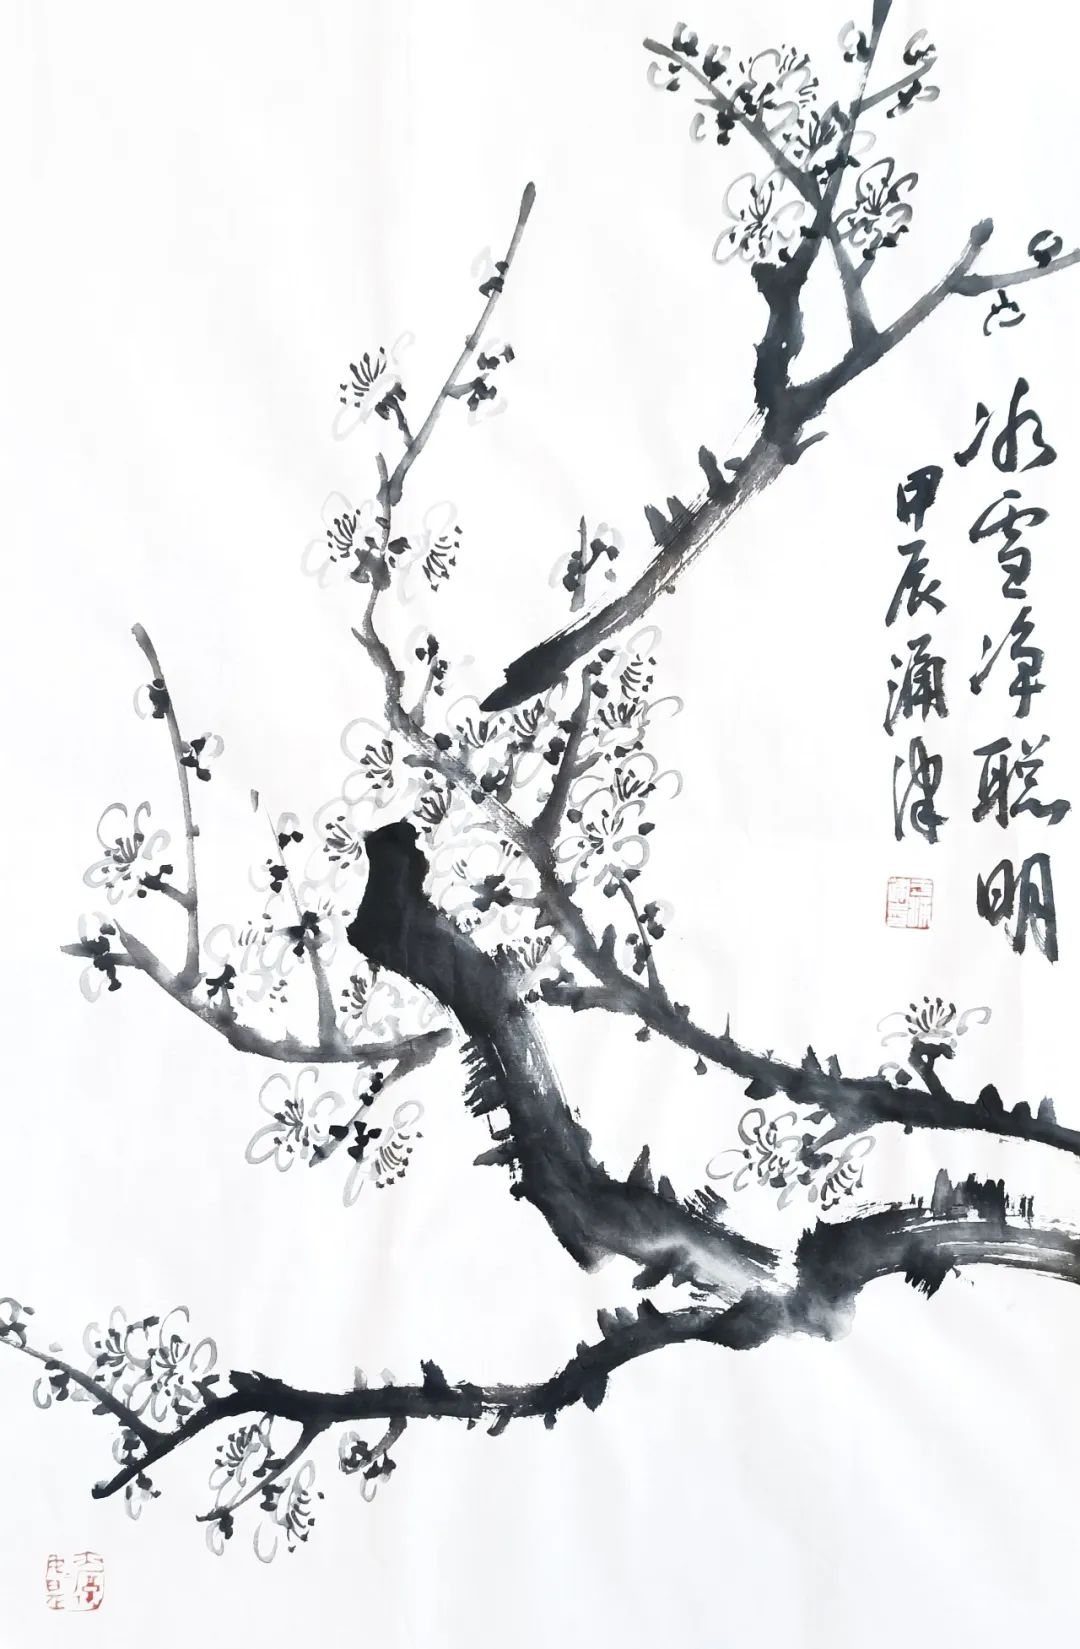 冰雪净聪明
甲辰涌津